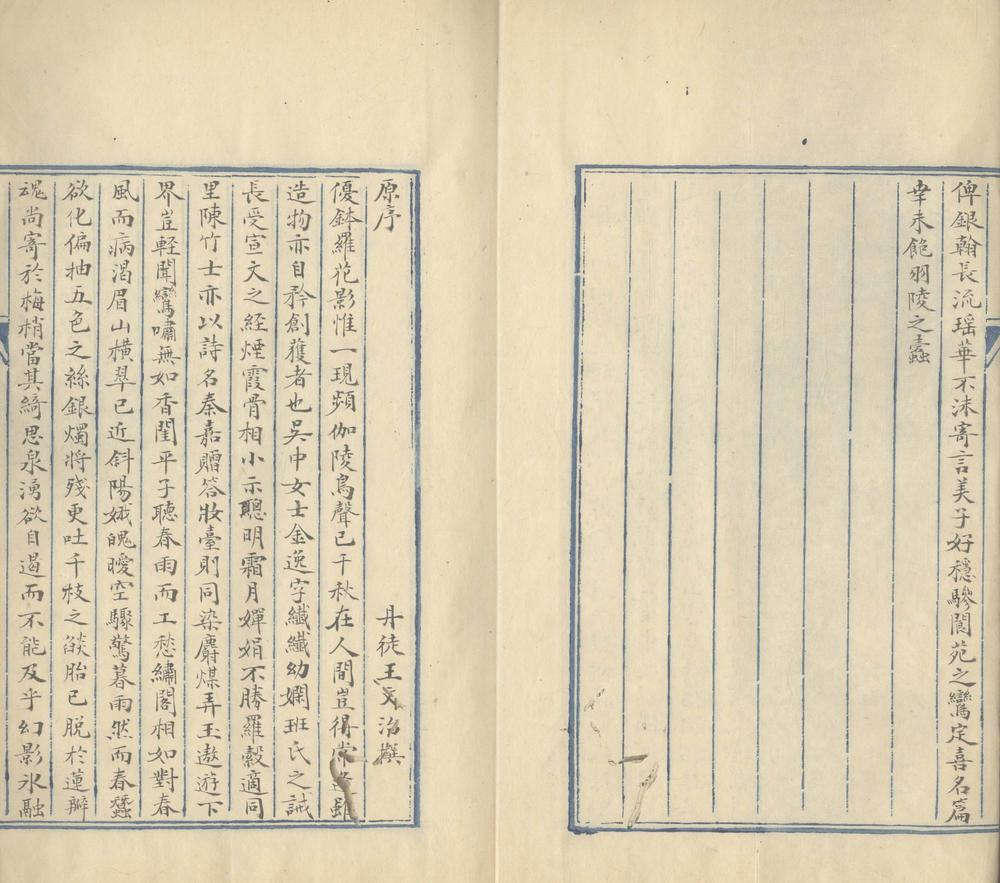 俾銀翰長流瑶華不沬寄言美子好穩驂閬苑之鸞定喜名篇
幸未飽羽陵之蠹
原序
丹徒王文治撰
優鉢羅花影惟一現頻伽陵鳥聲已千秋在人間豈得常逢雖
造物亦自矜創獲者也吳中女士金逸字纖纖幼嫻班氏之誡
長受宣文之経煙霞骨相小示聰明霜月嬋娟不勝羅縠適同
里陳竹士亦以詩名秦嘉贈答妝臺則同染麝煤弄玉遨遊下
界豈軽聞鸞嘯無如香閨平子聽春雨而工愁繡閣相如對春
風而病渴眉山横翠已近斜陽娥魄曖空驟驚暮雨然而春蠶
欲化偏抽五色之絲銀燭将殘更吐千枝之燄胎已脱於蓮瓣
魂尚寄於梅梢當其綺思泉湧欲自遏而不能及乎幻影冰融